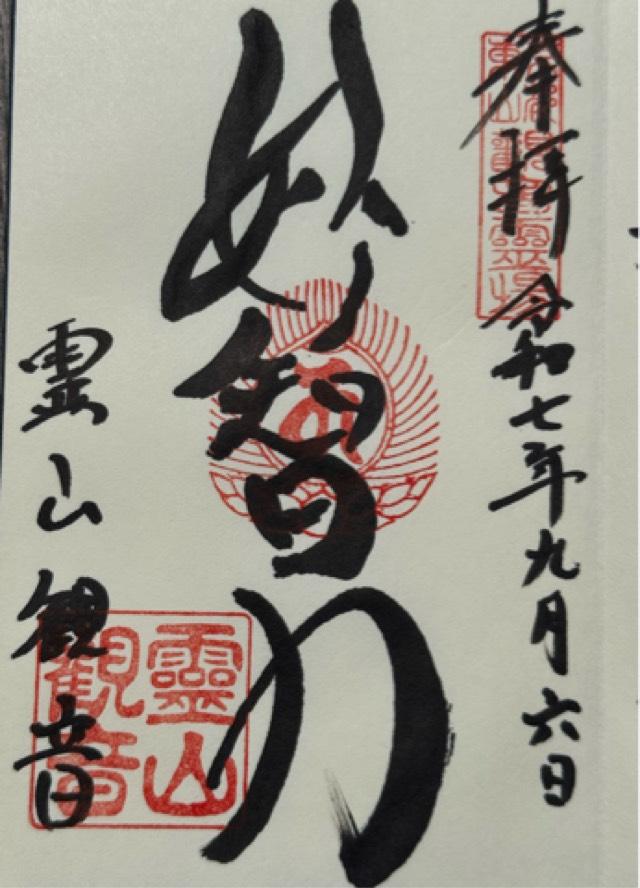 奉拝 令和七年九月六日
妙智力
霊山観音
霊山観音